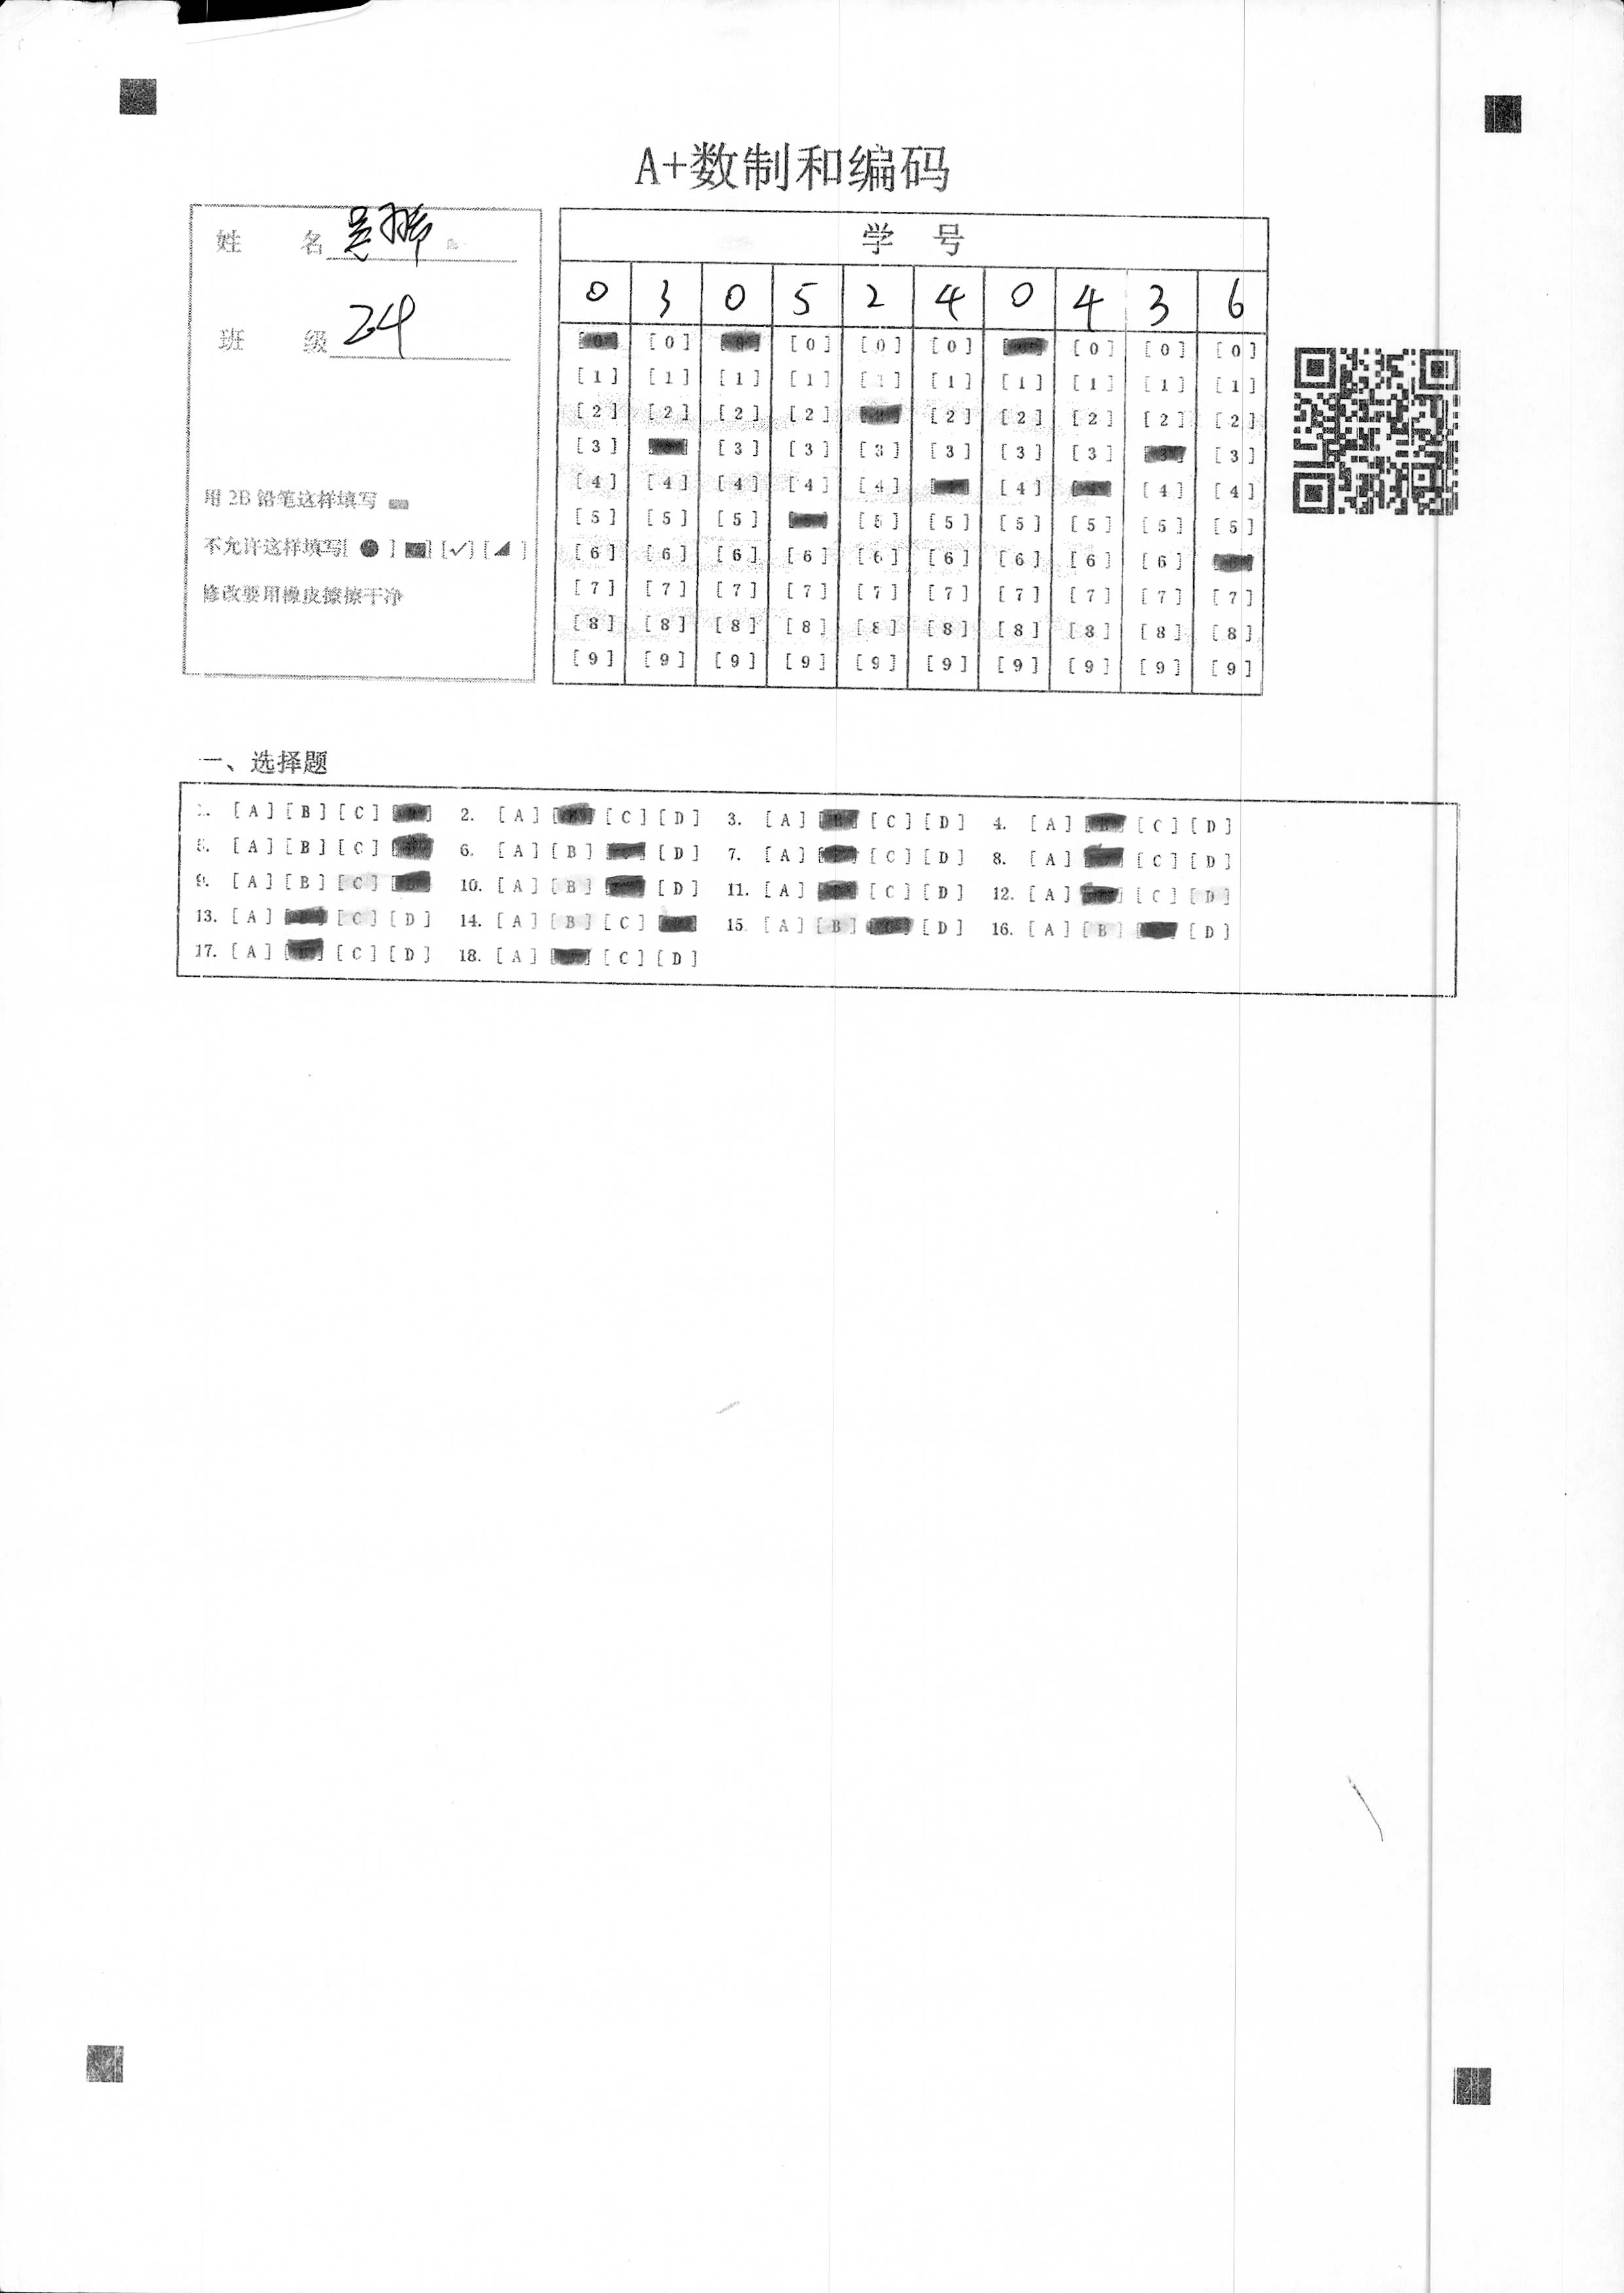 A+数制和编码
姓 名
班 级 24
用 2B 铅笔这样填写
不允许这样填写[ ● ] [■] [✓] [◢ ]
修改要用橡皮擦擦干净
学 号
0 3 0 5 2 4 0 4 3 6
[0] [0] [0] [0] [0] [0] [0]
[1] [1] [1] [1] [1] [1] [1] [1] [1] [1]
[2] [2] [2] [2] [2] [2] [2] [2] [2]
[3] [3] [3] [3] [3] [3] [3] [3]
[4] [4] [4] [4] [4] [4] [4] [4]
[5] [5] [5] [5] [5] [5] [5] [5] [5]
[6] [6] [6] [6] [6] [6] [6] [6] [6]
[7] [7] [7] [7] [7] [7] [7] [7] [7] [7]
[8] [8] [8] [8] [8] [8] [8] [8] [8] [8]
[9] [9] [9] [9] [9] [9] [9] [9] [9] [9]
一、选择题
[A] [B] [C] 2. [A] [C] [D] 3. [A] [C] [D] 4. [A] [C] [D]
5. [A] [B] [C] 6. [A] [B] [D] 7. [A] [C] [D] 8. [A] [C] [D]
9. [A] [B] [C] 10. [A] [B] [D] 11. [A] [C] [D] 12. [A] [C] [D]
13. [A] [C] [D] 14. [A] [B] [C] 15. [A] [B] [D] 16. [A] [B] [D]
17. [A] [C] [D] 18. [A] [C] [D]